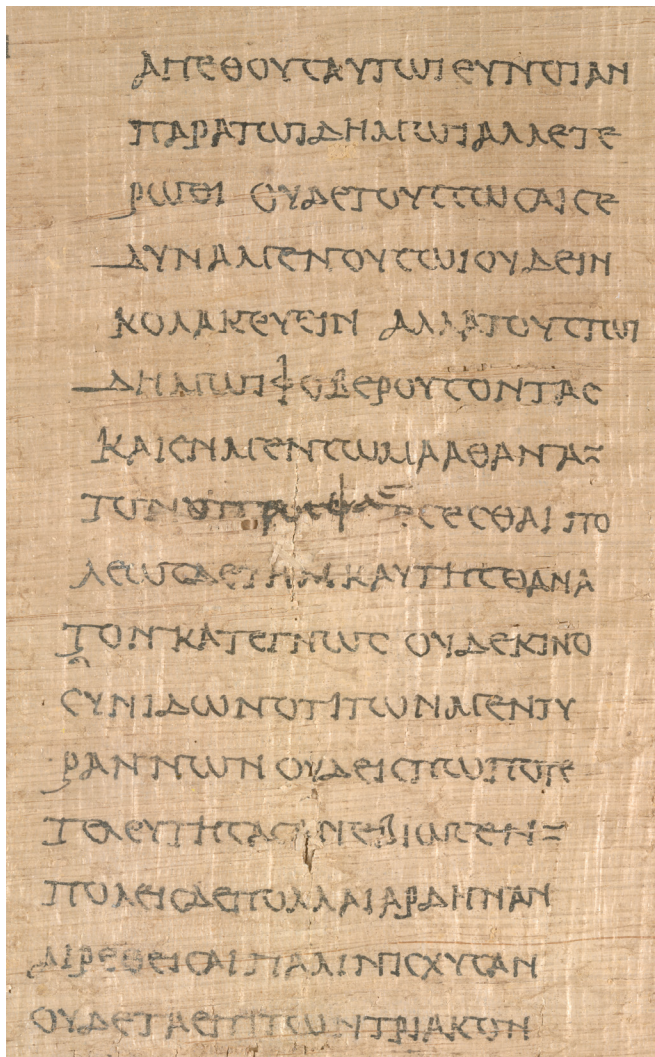 ΑΠΕΘΟΥϹΑΥΤΩΙΕΥΝΟΙΑΝ
ΠΑΡΑΤΩΙΔΗΜΩΙΑΛΛΕΤΕ
ΡΩΘΙ ΟΥΔΕΤΟΥϹϹΩϹΑΙϹΕ
ΔΥΝΑΜΕΝΟΥϹΩΙΟΥΔΕΙΝ
ΚΟΛΑΚΕΥΕΙΝ ΑΛΛΑΤΟΥϹΤΩΙ
ΔΗΜΩΙΦΟΒΕΡΟΥϹΟΝΤΑϹ
ΚΑΙΕΝΜΕΝϹΩΜΑΑΘΑΝΑ
ΤΟΝ ΕϹΕϹΘΑΙ ΠΟ
ΛΕΩϹΔΕΤΗΛΙΚΑΥΤΗϹΘΑΝΑ
ΤΟΝΚΑΤΕΓΝΩϹ ΟΥΔΕΚΙΝΟ
ϹΥΝΙΔΩΝΟΤΙΤΩΝΜΕΝΤΥ
ΡΑΝΝΩΝΟΥΔΕΙϹΠΩΠΟΤΕ
ΤΕΛΕΥΤΗϹΑϹΑΝΕΒΙΩϹΕΝ
ΠΟΛΕΙϹΔΕΠΟΛΛΑΙΑΡΔΗΝΑΝ
ΑΙΡΕΘΕΙϹΑΙΠΑΛΙΝΙϹΧΥϹΑΝ
ΟΥΔΕΤΑΕΠΙΤΩΝΤΡΙΑΚΟΝ